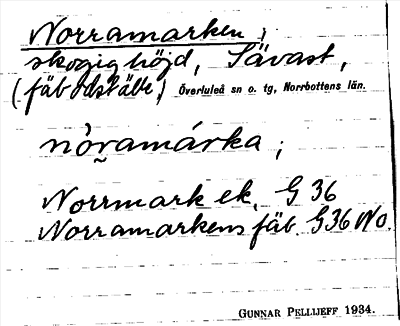 Norramarken,
skogig höjd, Sävast,
(fäbodställe) Överluleå sn o. tg, Norrbottens län.
nòr̰amárka;
Norrmark ek. G 36
Norramarkens fäb. G 36 No.
GUNNAR PELLIJEFF 1934.